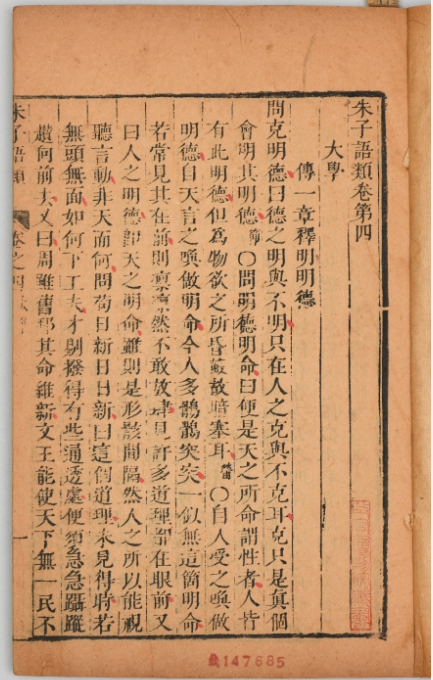 朱子語類卷第四
大學
傳一章釋明明德
問克明德曰德之明與不明只在人之克與不克耳克只是眞個
會明其明德節〇問明德明命曰便是天之所命謂性者人皆
有此明德但為物欲之所昏蔽故暗塞耳〇自人受之喚做
明德自天言之喚做明命今人多鶻鶻突突一似無這箇明命
若常見其在前則凜凜然不敢放肆見許多道理都在眼前又
曰人之明德卽天之明命雖則是形骸間隔然人之所以能視
聽言動非天而何問苟日新日日新曰這個道理未見得時若
無頭無面如何下工夫才剔撥得有些通透處便須急急躡蹤
趲何前去又曰周雖舊邦其命維新文王能使天下無一民不
朱子語類 卷之四 一
147685